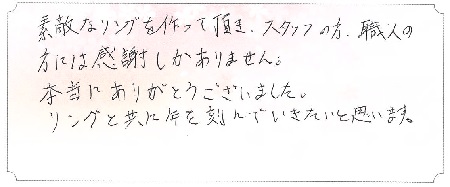 素敵なリングを作って頂き、スタッフの方、職人の
方には感謝しかありません。
本当にありがとうございました。
リングと共に年を刻んでいきたいと思います。